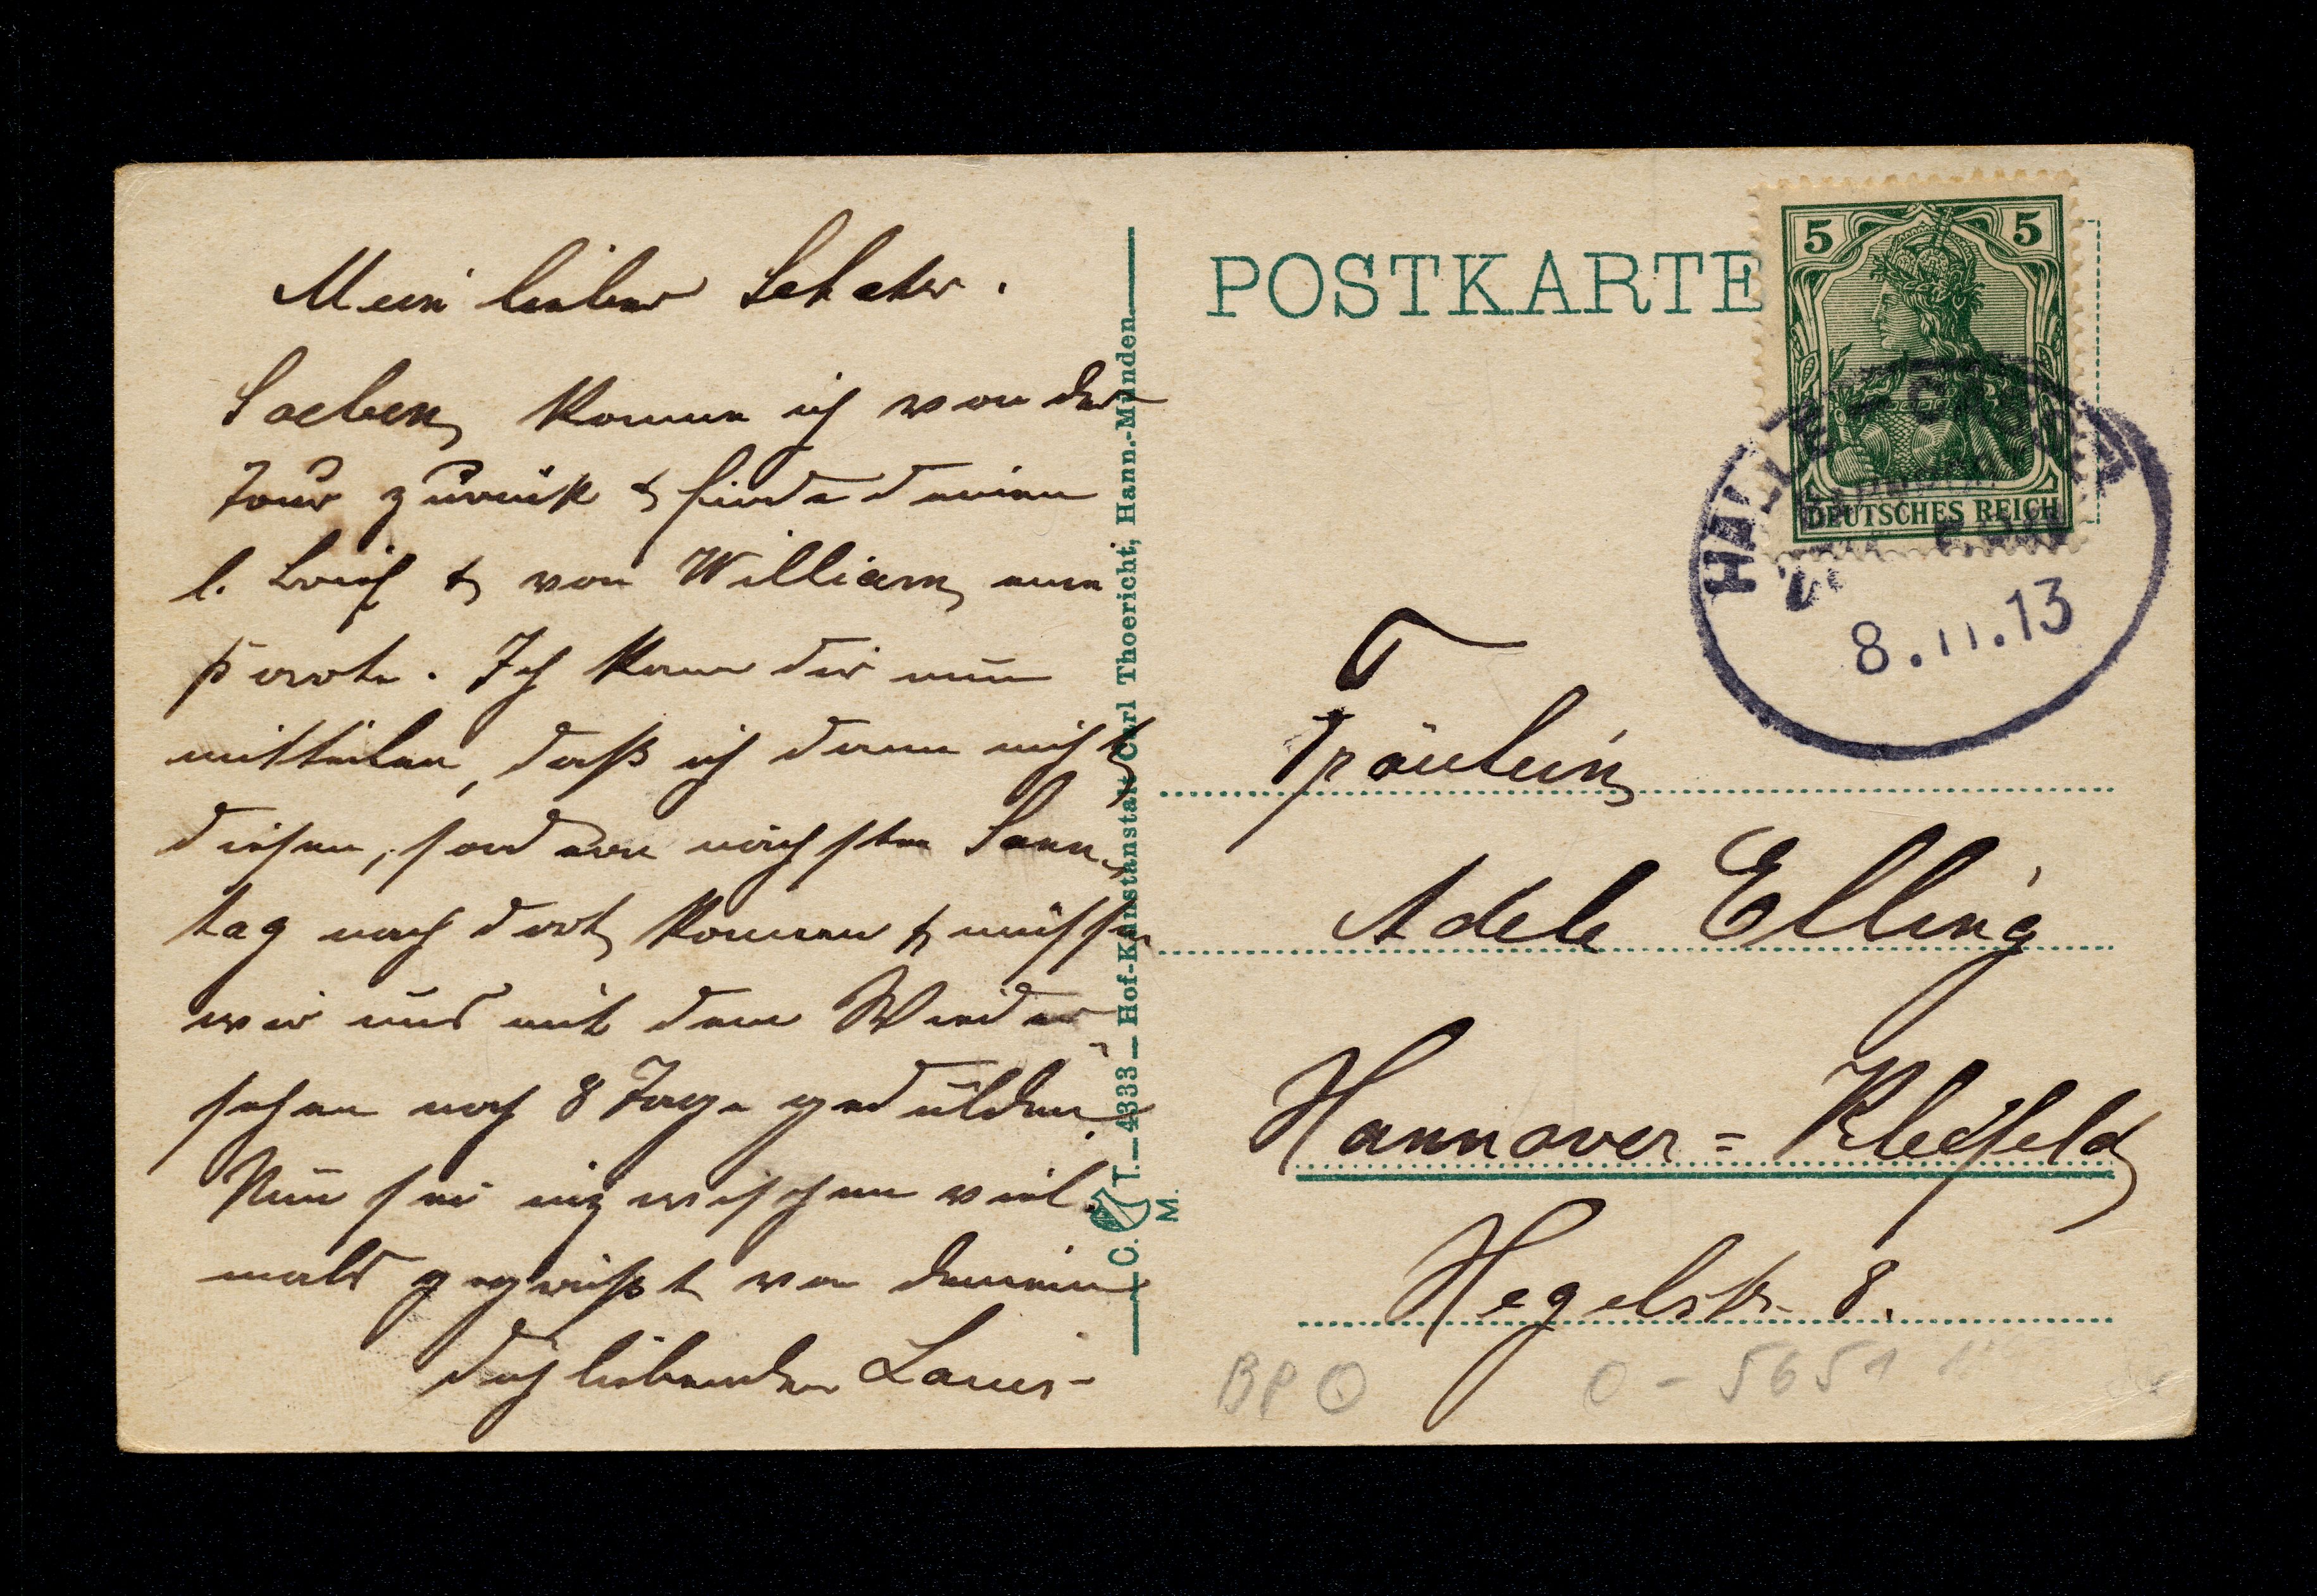 Mein lieber Schatz.
Soeben komme ich von der
Tour zurück & finde deinen
l. Brief & von William eine
Karte. Ich kann dir nun
mitteilen, daß ich dann nicht
diesen, sondern nächsten Sonn-
tag nach dort komme & müssen
wir uns mit dem Wieder
sehen noch 8 Tage gedulden.
Nun sei inzwischen viel
mals gegrüßt von deinem
dich liebenden Louis-
C. T. M. — 4333 — Hof-Kunstanstalt Carl Thoericht, Hann.-Münden
POSTKARTE
5 5
DEUTSCHES REICH
HALLE
8.11.13
Fräulein
Adele Elling
Hannover = Kleefeld
Hegelstr. 8.
BPO
0 - 5651